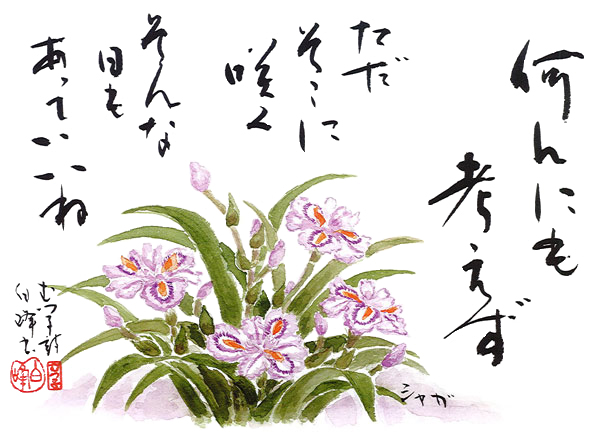 何んにも
考えず
ただ
そこに
咲く
そんな
日も
あっていいね
むつ子詩
白峰書
シャガ